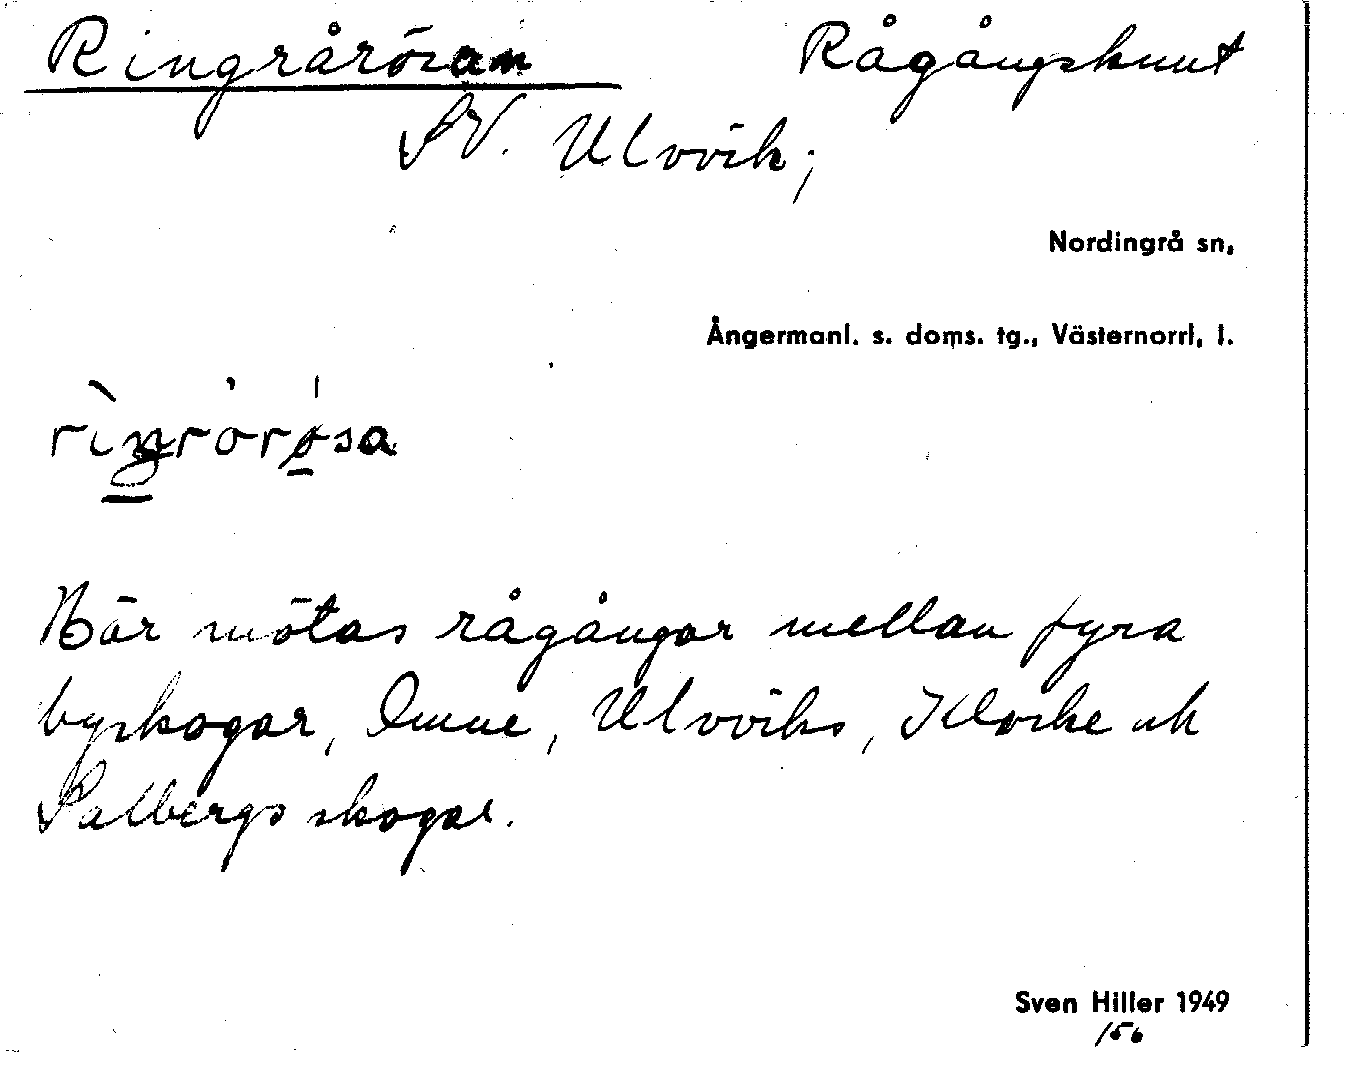 Ringrårösan Rågångspunkt
SV. Ulvvik;
Nordingrå sn,
Ångermanl. s. doms. tg., Västernorrl. l.
Här mötas rågångar mellan fyra
byskogar, Omne, Ulvviks, Klocke och
Salbergs skogar.
Sven Hiller 1949
156